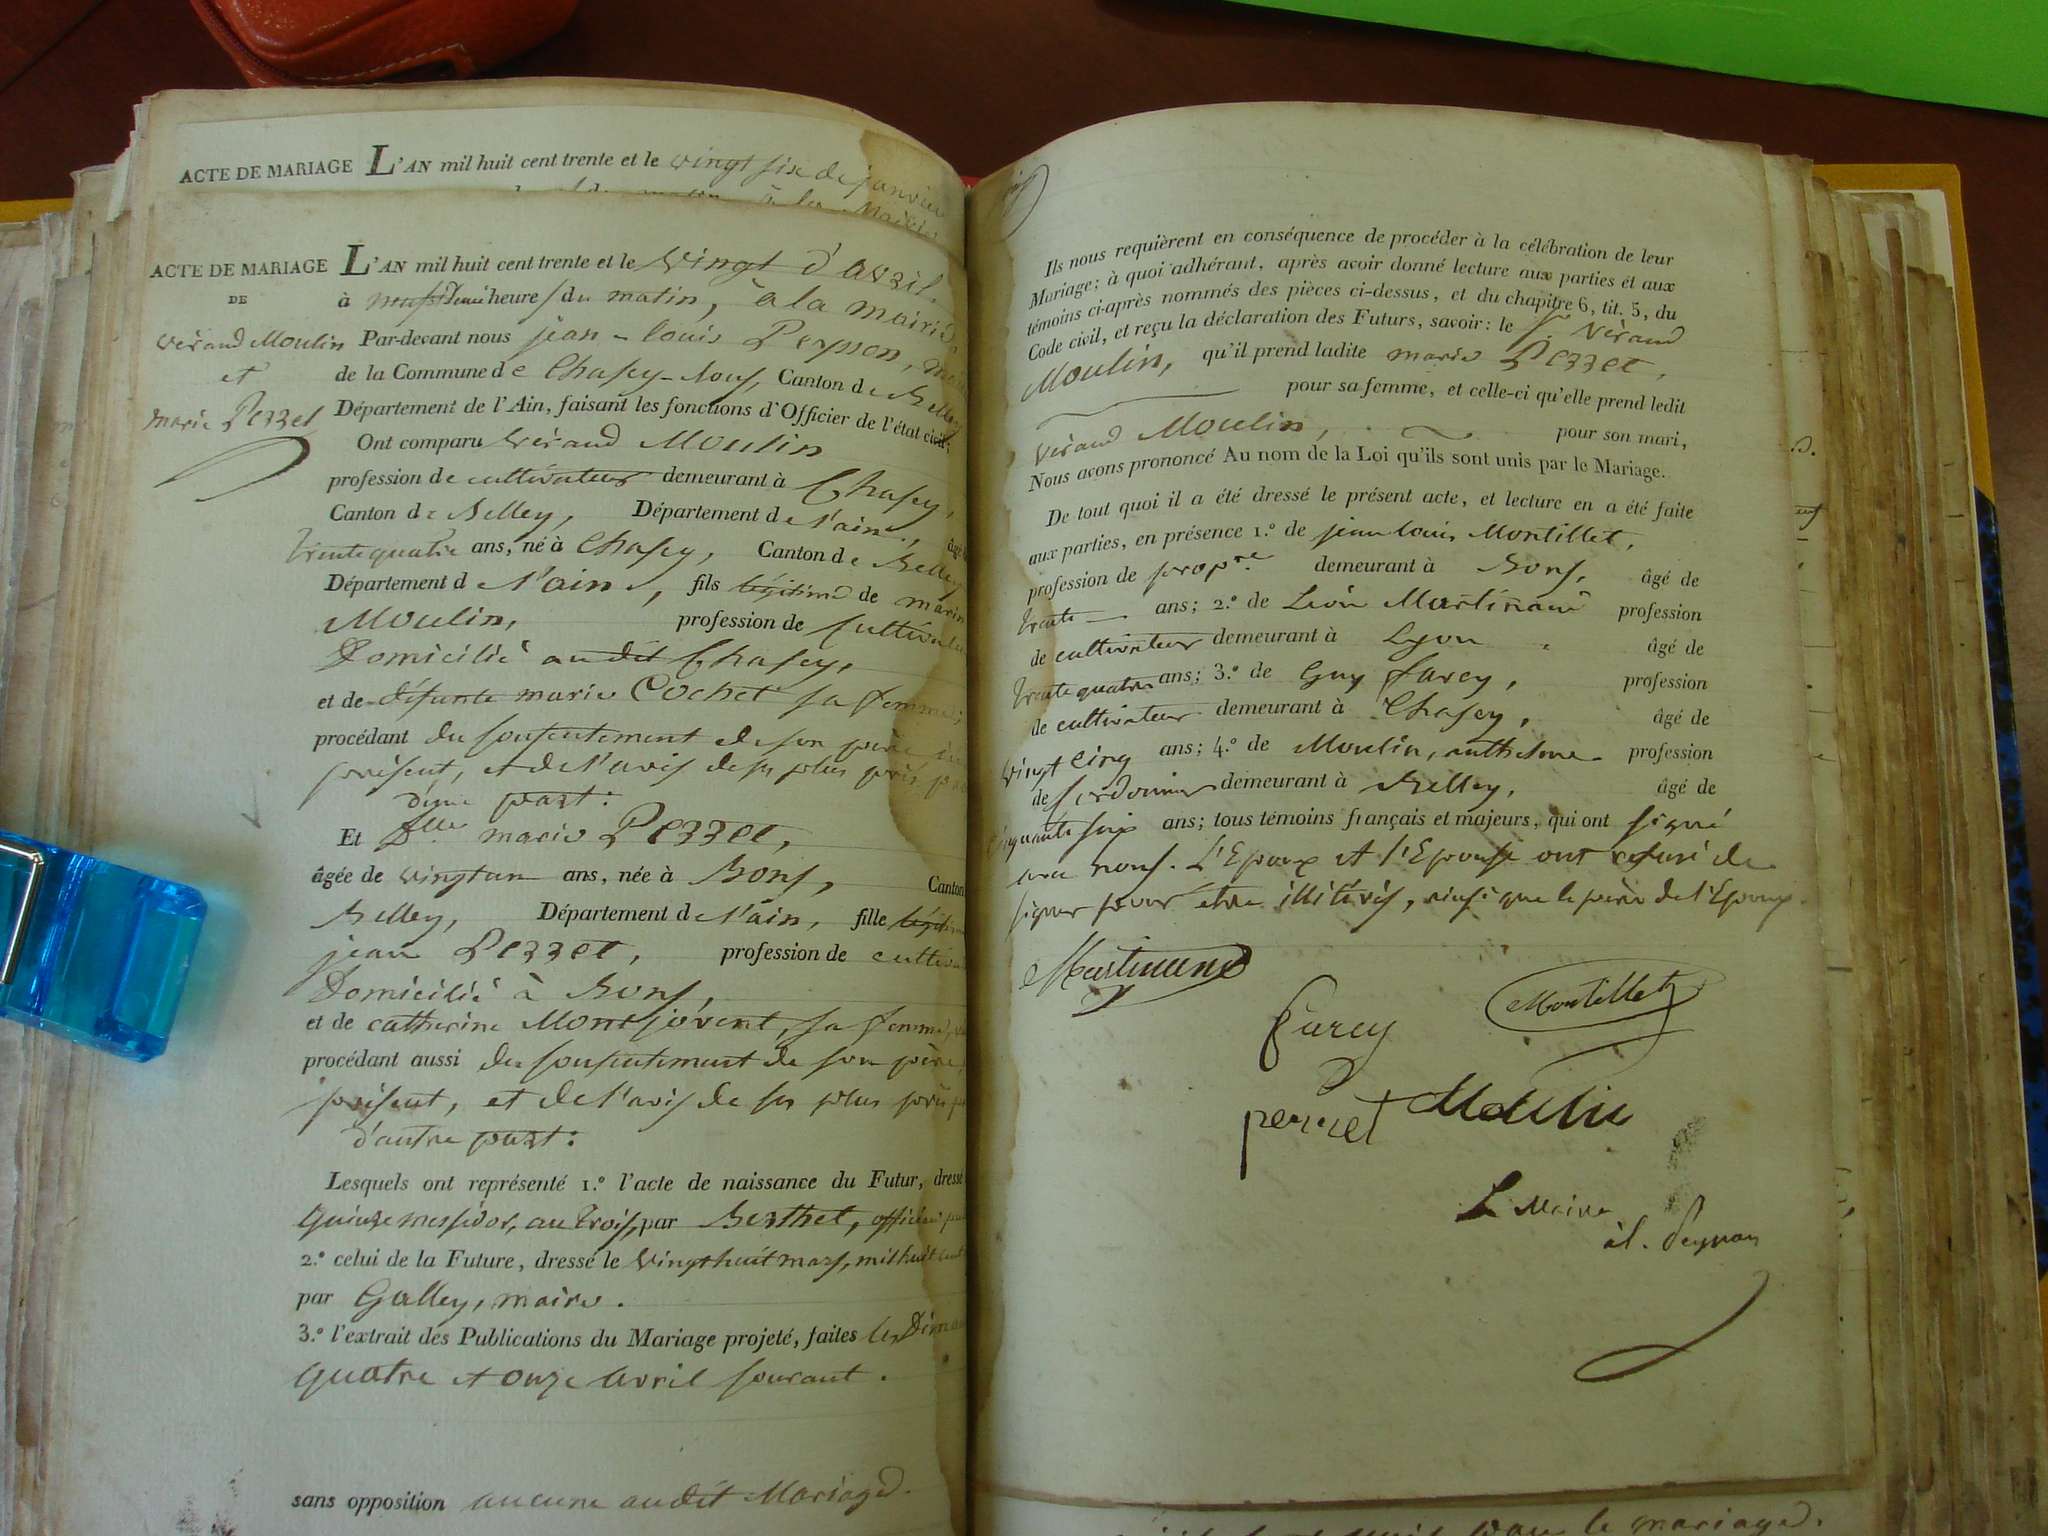 ACTE DE MARIAGE L'AN mil huit cent trente et le vingt six de janvier
à la Mairie
ACTE DE MARIAGE L'AN mil huit cent trente et le vingt d'avril
DE
Vérand Moulin
et
marie Perret
à neuf heures du matin, à la mairie
Par-devant nous jean-louis Peysson,
de la Commune de Chasey-bons, Canton de Belley
Département de l'Ain, faisant les fonctions d'Officier de l'état civil;
Ont comparu Vérand Moulin
profession de cultivateur demeurant à Chasey,
Canton de Belley, Département de l'ain, âgé
trente quatre ans, né à Chasey, Canton de Belley
Département d l'ain, fils légitime de
Moulin, profession de
Domicilié audit Chasey,
et de défunte marie Cochet sa femme;
procédant du consentement de son père,
présent, et de l'avis de ses plus près
d'une part:
Et Dlle marie Perret,
âgée de vingt un ans, née à Bons, Canton
Belley, Département de l'ain, fille
jean Perret, profession de
Domicilié à Bons,
et de catherine Montjovent, sa femme,
procédant aussi du consentement de son père,
présent, et de l'avis de ses plus près
d'autre part:
Lesquels ont représenté 1.º l'acte de naissance du Futur, dressé
Quinze messidor, an trois, par Berthet, officier
2.º celui de la Future, dressé le vingt huit mars, mil huit cent
par Galley, maire.
3.º l'extrait des Publications du Mariage projeté, faites les
quatre et onze avril courant.
sans opposition aucune audit Mariage.
Ils nous requièrent en conséquence de procéder à la célébration de leur
Mariage; à quoi adhérant, après avoir donné lecture aux parties et aux
témoins ci-après nommés des pièces ci-dessus, et du chapitre 6, tit. 5, du
Code civil, et reçu la déclaration des Futurs, savoir: le sr Vérand
Moulin, qu'il prend ladite marie Perret,
pour sa femme, et celle-ci qu'elle prend ledit
Vérand Moulin, pour son mari,
Nous avons prononcé Au nom de la Loi qu'ils sont unis par le Mariage.
De tout quoi il a été dressé le présent acte, et lecture en a été faite
aux parties, en présence 1.º de jean louis Montillet,
profession de propre demeurant à Bons, âgé de
trente ans; 2.º de Léon Martinand profession
de cultivateur demeurant à Lyon âgé de
trente quatre ans; 3.º de Guy furcy, profession
de cultivateur demeurant à Chasey, âgé de
vingt cinq ans; 4.º de Moulin, anthelme profession
de cordonnier demeurant à Belley, âgé de
cinquante six ans; tous témoins français et majeurs, qui ont signé
avec nous. L'Epoux et l'Epouse ont refusé de
signer pour etre illitérés, ainsi que le père de l'Epoux.
Martinand
furcy
Montillet
perret
Moulin
Le Maire
Peysson
le mariage.